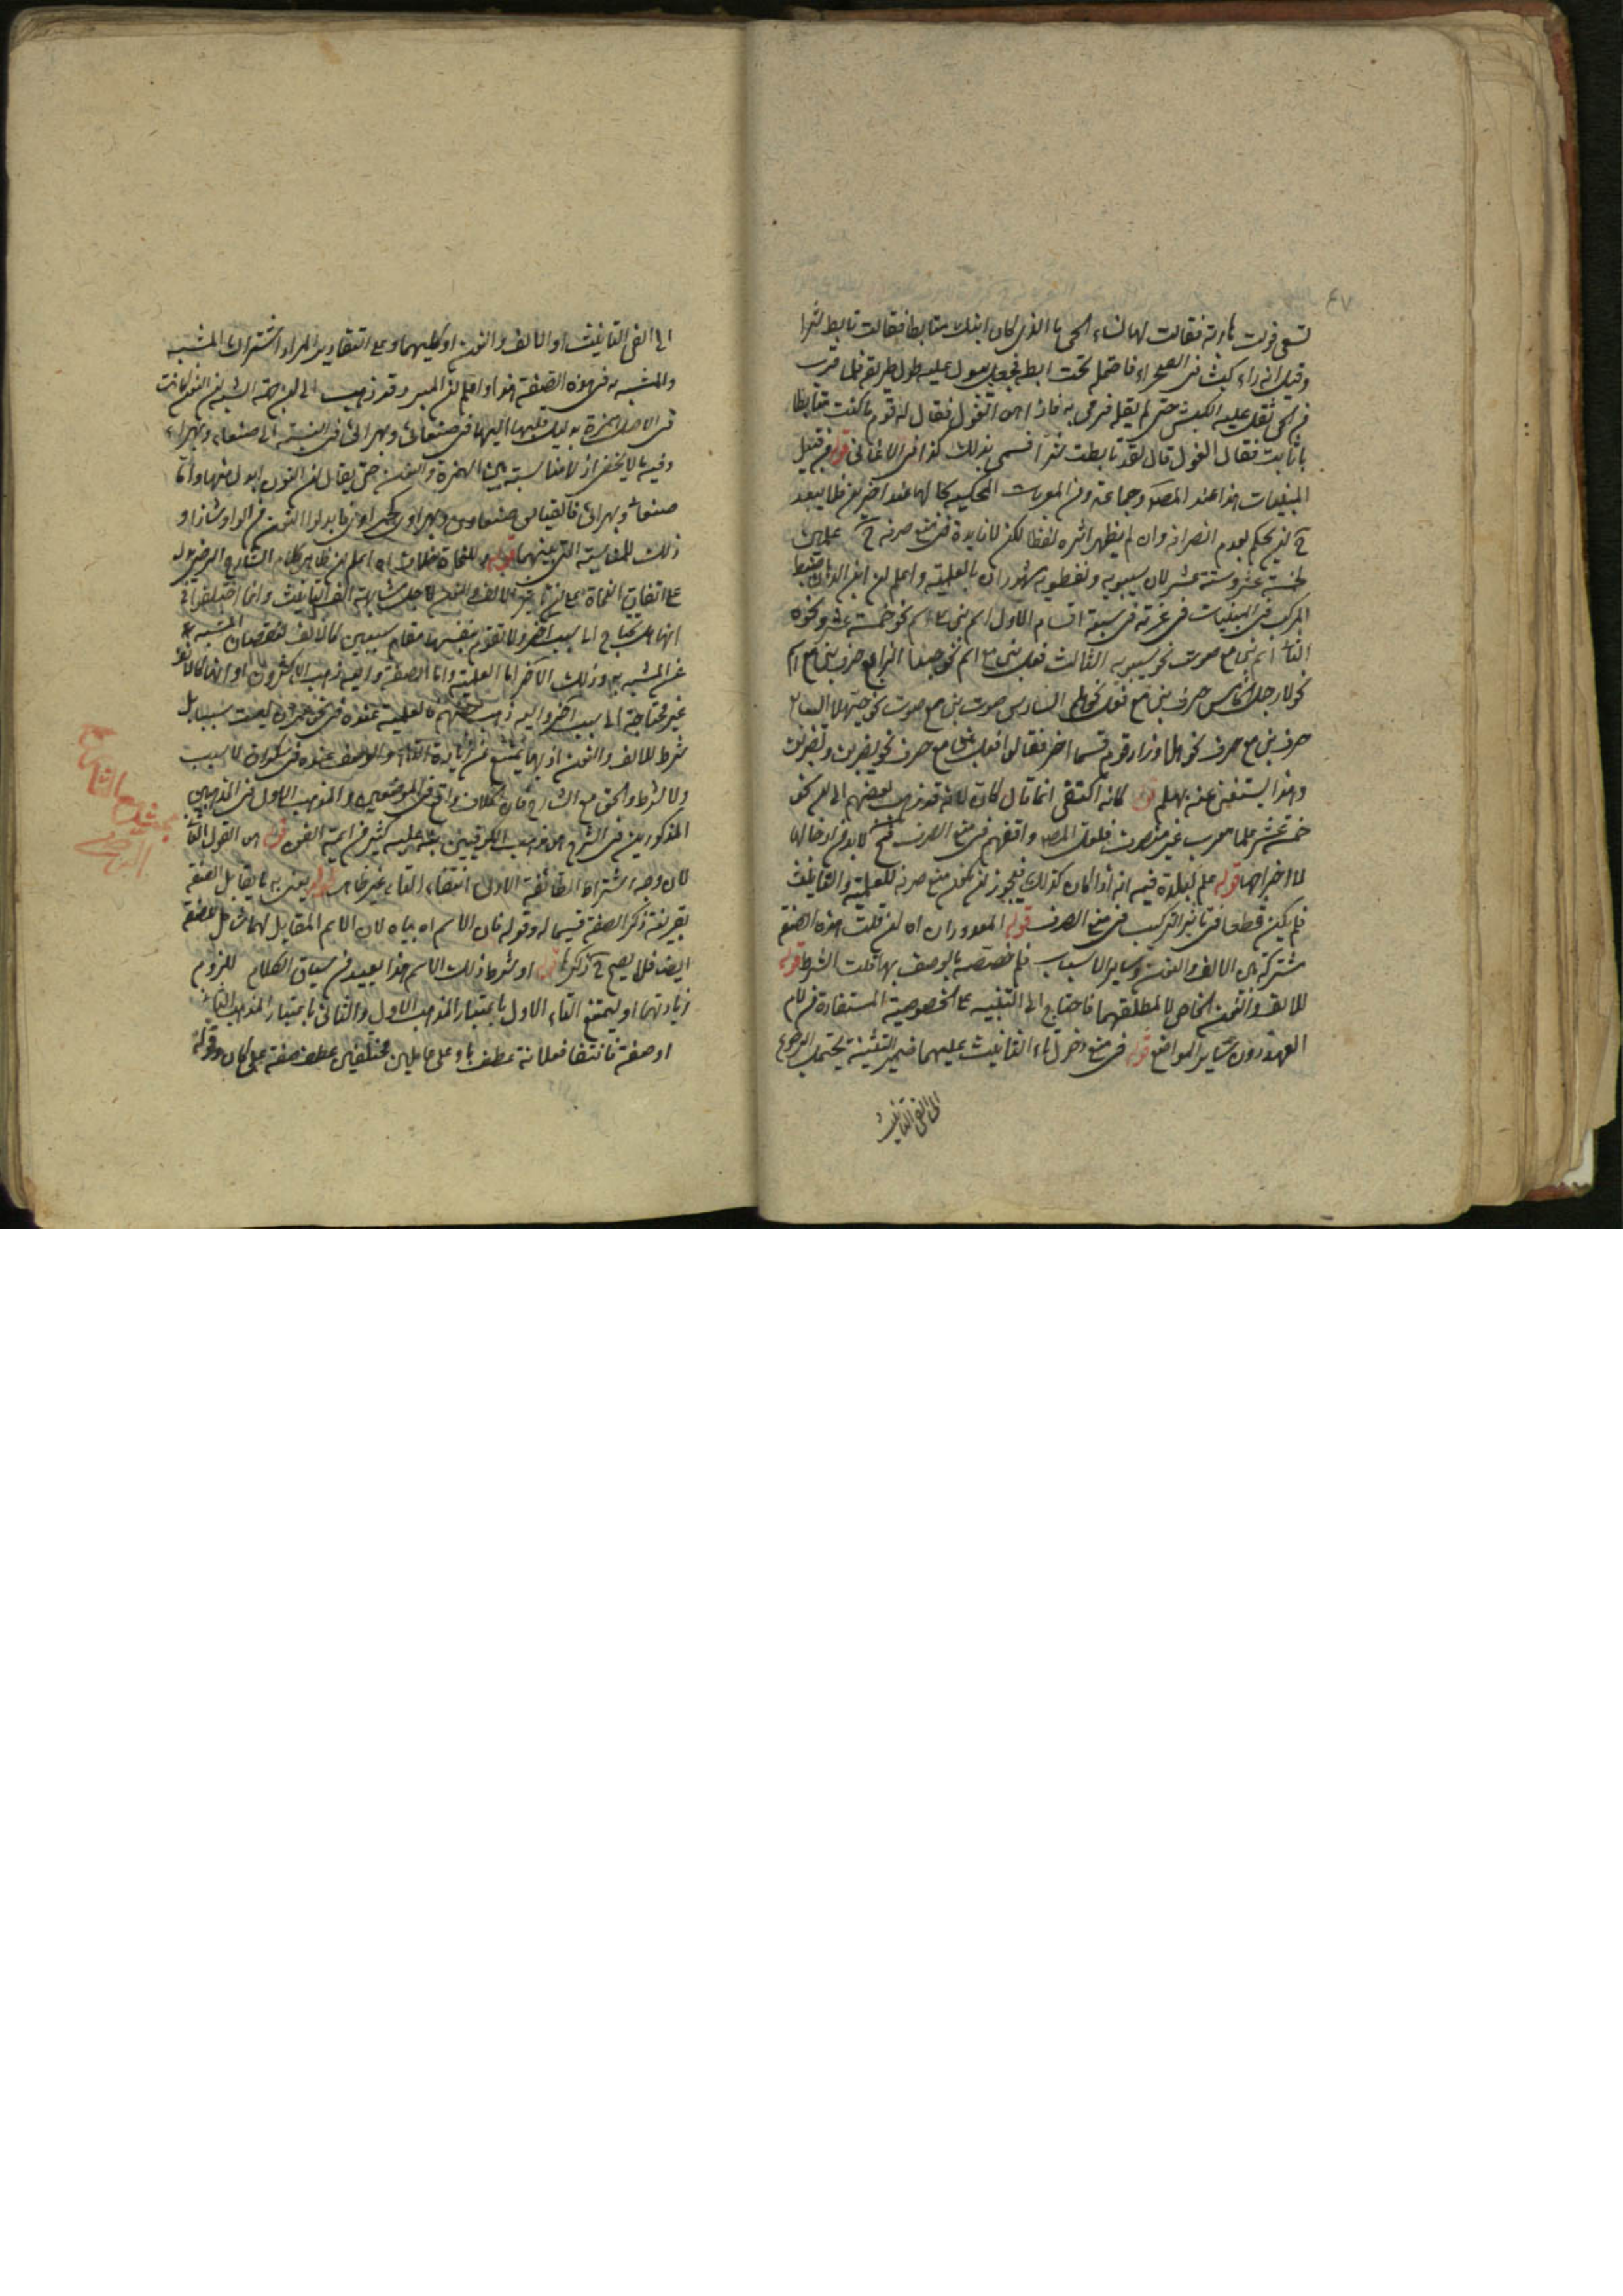 ٤٧
لها نساء الحي ما الذي كان ابنك متابطا فقالت تابط شرا
وقيل انه راى كبشا في الصحراء فاحتمله تحت ابطه فجعل يبول عليه طول طريقه فلما قرب
من الحي ثقل عليه الكبش حتى لم يقله فرمى به فاذا هو الغول فقال له قومه ما كنت متابطا
يا ثابت فقال الغول قال لقد تابطت شرا فسمي بذلك كذا في الاغاني قوله من قبيل
المبنيات هذا عند المصنف وجماعة ومن المعربات المحكية
ان يحكم بعدم انصرافه وان لم يظهر اثره لفظا لكن لا فايدة في منع صرفه علمين
لخمسة عشر وستة عشر لان سيبويه ونفطويه مشهوران بالعلمية واعلم ان ابن الدهان ضبط
المركب في المبنيات في غرته في سبعة اقسام الاول اسم بني مع اسم نحو خمسة عشر ونحوه
الثاني اسم بني مع صوت نحو سيبويه الثالث فعل بني مع اسم نحو حبذا الرابع حرف بني مع اسم
نحو لا رجل الخامس حرف بني مع فعل نحو هلم السادس صوت بني مع صوت نحو حيهلا السابع
حرف بني مع حرف نحو هلا وزاد قوم قسما اخر فقالوا فعل بني مع حرف نحو يضربن وتضربن
وهذا يستغنى عنه بهلم قوله كانه اكتفى انما قال كان لانه قد ذهب بعضهم الى ان نحو
خمسة عشر علما معرب غير منصرف فلعل المصنف وافقهم في منع الصرف فح لا بد من ادخالها
لا اخراجها قوله علم لبلدة فيه انه اذا كان كذلك فيجوز ان يكون منع صرفه للعلمية والتانيث
فلم يكن قطعا في تاثير التركيب في منع الصرف قوله المعدودان اه ان قلت هذه الصفة
مشتركة بين الالف والنون وساير الاسباب فلم خصصه بالوصف بها قلت اشارة
للالف والنون الخاص لا لمطلقهما فاحتاج الى التنبيه على الخصوصية المستفادة من لام
العهد دون ساير المواضع قوله في منع دخول تاء التانيث عليهما ضمير التثنية يحتمل الرجوع
الى الفي التانيث
الى الفي التانيث او الالف والنون او كليهما وعلى التقادير المراد اشتراك المشبه
والمشبه به في هذه الصفة هذا واعلم ان المبرد قد ذهب الى ان جهة الشبه ان النون كانت
في الاصل همزة بدليل قلبها اليها في صنعاني وبهراني في النسبة الى صنعاء وبهراء
وفيه ما لا يخفى اذ لا مناسبة بين الهمزة والنون حتى يقال ان النون ابدل منها واما
صنعاني وبهراني فالقياس صنعاوي وبهراوي كحمراوي فابدلوا النون من الواو شاذا و
ذلك للمناسبة التي بينهما قوله للنحاة خلاف اه اعلم ان ظاهر كلام الشارح الرضي يدل
على اتفاق النحاة على ان تاثير الالف والنون لاجل مشابهة الف التانيث وانما اختلفوا في
انها هل تحتاج الى سبب اخر ولا تقوم بنفسها مقام سببين كالالف لنقصان المشبه
عن المشبه به وذلك الاخر اما العلمية واما الصفة واليه ذهب الاكثرون او انها كالالف
غير محتاجة الى سبب اخر واليه ذهب بعضهم فالعلمية عنده في نحو عمران ليست سببا بل
شرط للالف والنون اذ بها يمتنع من زيادة التاء والوصف عنده في سكران لا سبب
ولا شرط والحق مع الشارح فان الخلاف واقع في الموضعين والمذهب الاول من المذهبين
المذكورين في الشرح هو مذهب الكوفيين مشى عليه كثير من ايمة الفن قوله هو القول الثاني
لان وجه اشتراط الطائفة الاولى انتفاء التاء غير ظاهر قوله يعني به ما يقابل الصفة
بقرينة ذكر الصفة قسيما له وقوله فان الاسم اه بيانه لان الاسم المقابل لهما شامل للصفة
ايضا فلا يصح ذكرها قوله او شرط ذلك الاسم هذا بعيد من سياق الكلام للزوم
زيادتهما او ليمتنع التاء الاول باعتبار المذهب الاول والثاني باعتبار المذهب الثاني
او صفة فانتفاء فعلانة عطف باو على عاملين مختلفين عطف صفة على كان وقوله
الشارح
الرضي